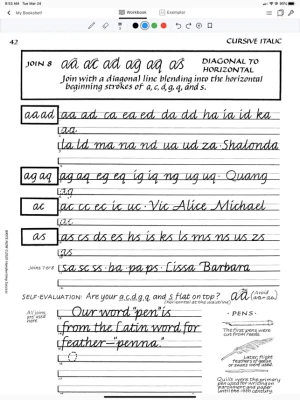 9:53 AM Tue Mar 24
My Bookshelf
Workbook
Exemplar
42
CURSIVE ITALIC
JOIN 8 aa ac ad ag aq as DIAGONAL TO HORIZONTAL
Join with a diagonal line blending into the horizontal
beginning strokes of a, c, d, g, q, and s.
aa ad aa ad ca ea ed da dd ha ia id ka
aa
la ld ma na nd ua ud za · Shalonda
ag aq ag aq eg eq ig iq ng ug uq · Quang
ag
ac ac cc ec ic uc · Vic Alice Michael
ac
as as cs ds es hs is ks ls ms ns us zs
as
Joins 7 & 8 sa sc ss · ba · pa ps · Lissa Barbara
SELF-EVALUATION: Are your a, c, d, g, q, and s flat on top?
(horizontal at the waistline)
All joins are used here
Our word "pen" is
from the Latin word for
feather—"penna."
· PENS ·
The first pens were
cut from reeds.
Later, flight
feathers of geese
or swans were used.
Quills were the primary
pen used for writing on
parchment and paper
until the 19th century.